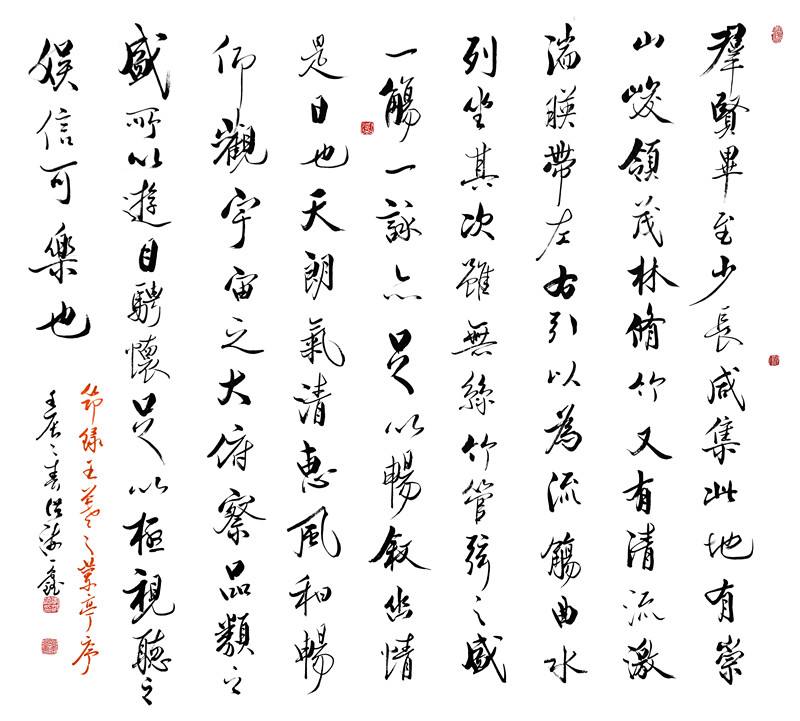 羣賢畢至少長咸集此地有崇
山峻領茂林脩竹又有清流激
湍暎帶左右引以為流觴曲水
列坐其次雖無絲竹管弦之盛
一觴一詠亦足以暢敘幽情
是日也天朗氣清惠風和暢
仰觀宇宙之大俯察品類之
盛所以遊目騁懷足以極視聽之
娛信可樂也
節録王羲之蘭亭序
壬辰之春